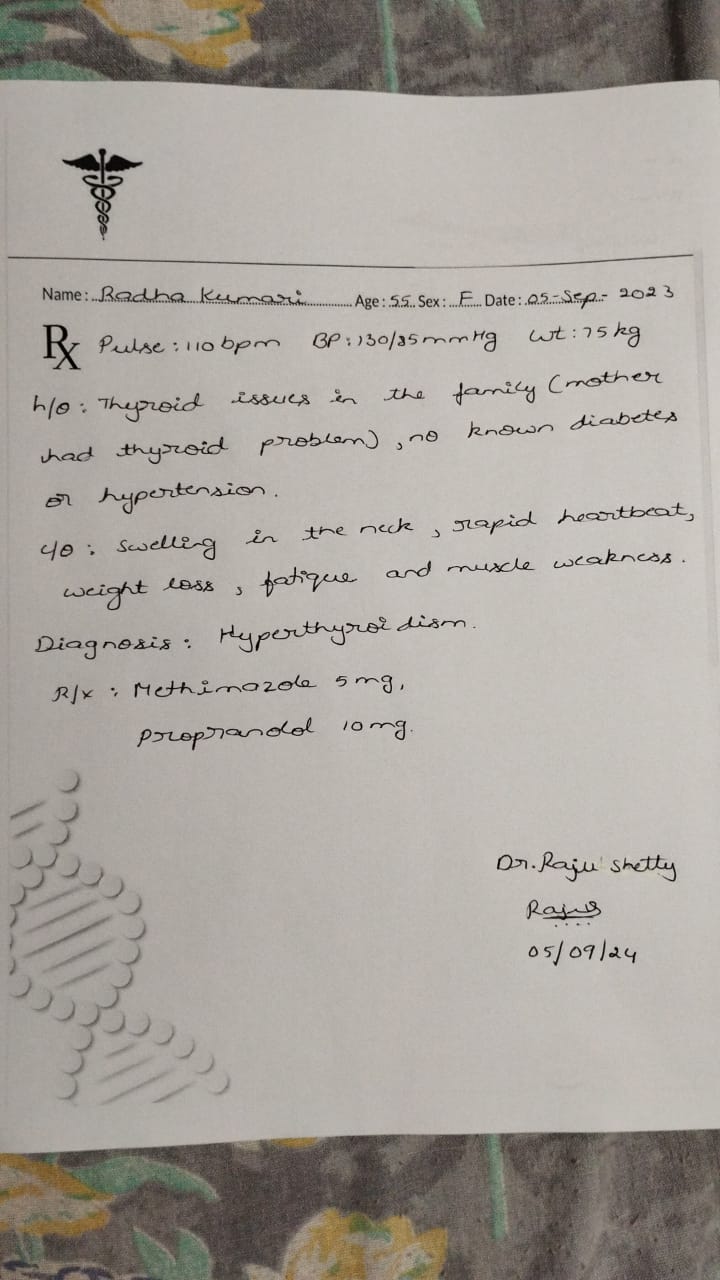 Name: Radha Kumari Age: 55 Sex: F Date: 05-Sep-2023
Rx Pulse: 110 bpm BP: 130/85 mmHg Wt: 75 kg
h/o: Thyroid issues in the family (mother
had thyroid problem), no known diabetes
or hypertension.
c/o: Swelling in the neck, rapid heartbeat,
weight loss, fatigue and muscle weakness.
Diagnosis: Hyperthyroidism.
R/x: Methimazole 5 mg,
Propranolol 10 mg.
Dr. Raju Shetty
RajuS
05/09/24